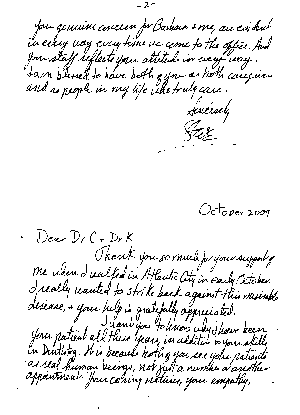 - 2 -
your genuine concern for Barbara & me, are evident
in every way everytime we come to the office. And
your staff reflects your attitude in every way.
I am blessed to have both of you as both caregivers
and as people in my life who truly care.
Sincerely
October 2009
Dear Dr C + Dr K
Thank you so much for your supporting
me when I walked in Atlantic City in early October.
I really wanted to strike back against this miserable
disease, & your help is gratefully appreciated.
I want you to know why I have been
your patient all these years, in addition to your skills
in Dentistry. It is because both of you see your patients
as real human beings, not just a number or another
appointment. Your caring natures, your empathy,